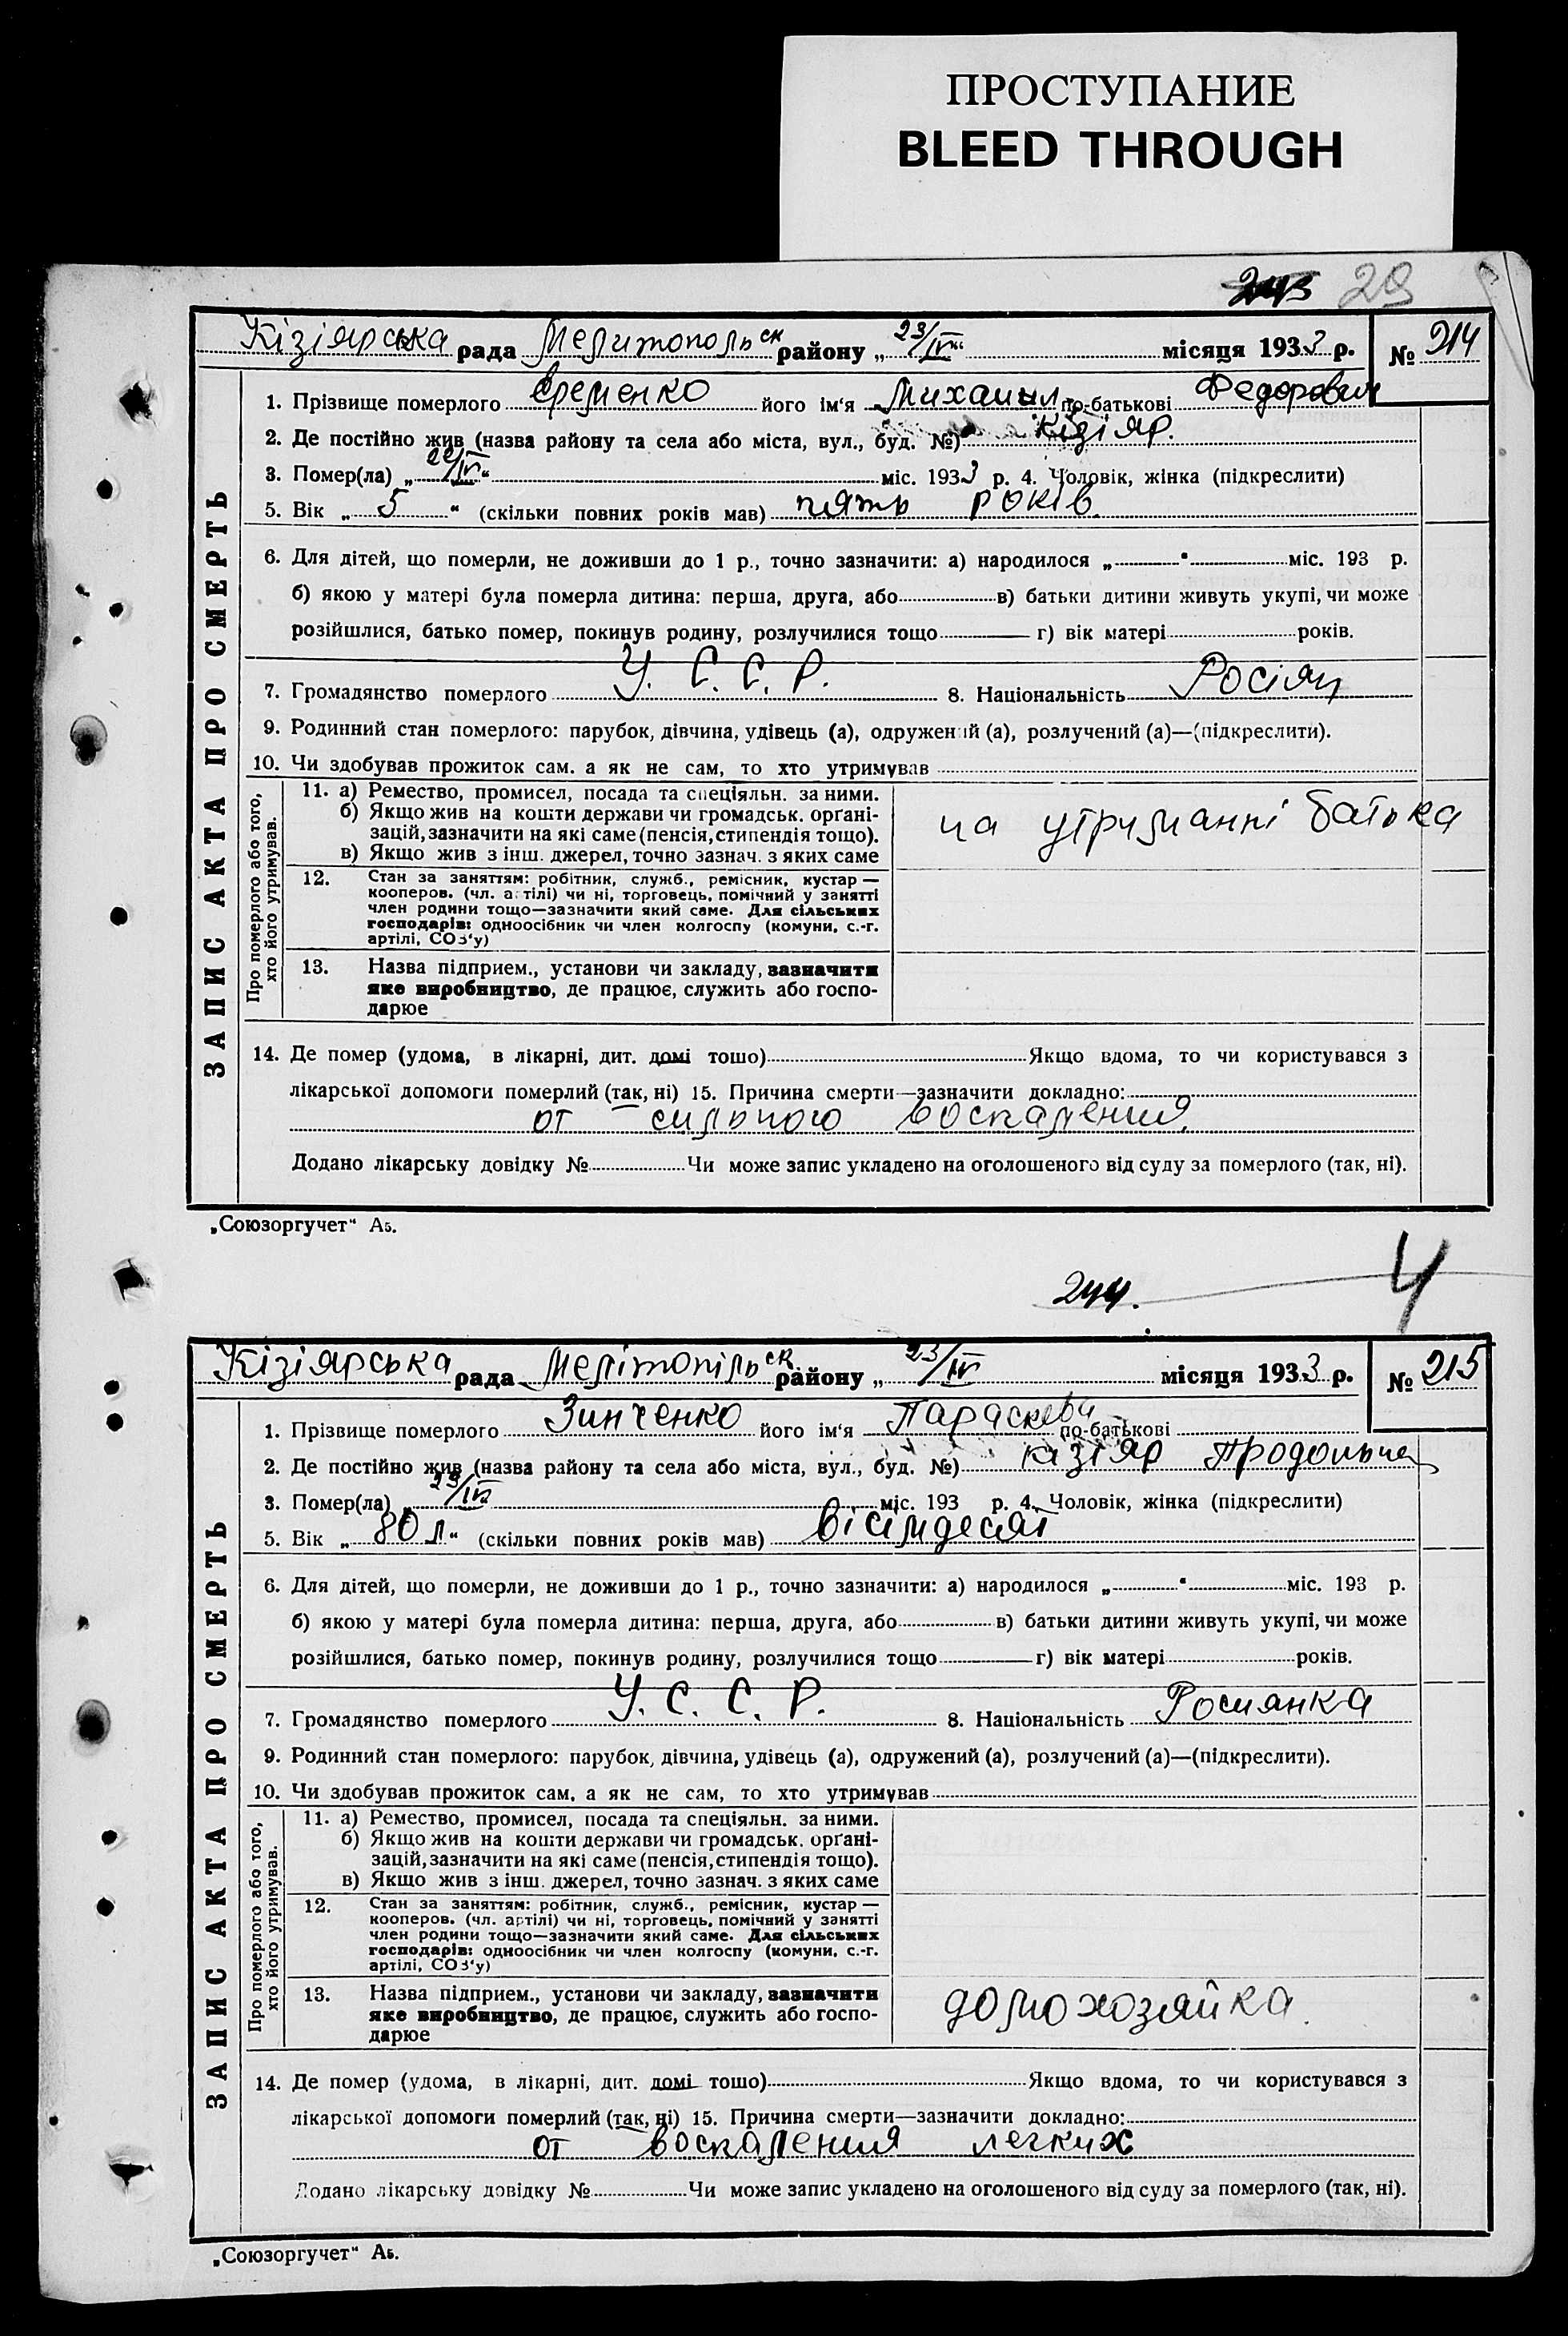 ПРОСТУПАНИЕ
BLEED THROUGH
29
Кізіярська рада Мелитопольск району „23/IV“ місяця 1933 р. № 214
1. Прізвище померлого Єременко його ім‘я Михаил по-батькові Федорович
2. Де постійно жив (назва району та села або міста, вул., буд. №) Кізіяр.
3. Помер(ла) „22/IV“ міс. 1933 р. 4. Чоловік, жінка (підкреслити)
5. Вік „5“ (скільки повних років мав) пять років.
6. Для дітей, що померли, не доживши до 1 р., точно зазначити: а) народилося „ “ міс. 193 р.
б) якою у матері була померла дитина: перша, друга, або в) батьки дитини живуть укупі, чи може
розійшлися, батько помер, покинув родину, розлучилися тощо г) вік матері років.
7. Громадянство померлого У. С. С. Р. 8. Національність Росіян
9. Родинний стан померлого: парубок, дівчина, удівець (а), одружений (а), розлучений (а)—(підкреслити).
10. Чи здобував прожиток сам, а як не сам, то хто утримував
Про померлого або того, хто його утримував.
11. а) Ремество, промисел, посада та спеціяльн. за ними.
б) Якщо жив на кошти держави чи громадськ. орґані-
зацій, зазначити на які саме (пенсія, стипендія тощо).
в) Якщо жив з інш. джерел, точно зазнач. з яких саме
на утриманні батька
12. Стан за заняттям: робітник, служб., ремісник, кустар —
кооперов. (чл. артілі) чи ні, торговець, помічний у занятті
член родини тощо—зазначити який саме. Для сільських
господарів: одноосібник чи член колгоспу (комуни, с.-г.
артілі, СОЗ‘у)
13. Назва підприєм., установи чи закладу, зазначити
яке виробництво, де працює, служить або госпо-
дарює
14. Де помер (удома, в лікарні, дит. домі тощо) Якщо вдома, то чи користувався з
лікарської допомоги померлий (так, ні) 15. Причина смерти—зазначити докладно:
от сильного воспаления.
Додано лікарську довідку № Чи може запис укладено на оголошеного від суду за померлого (так, ні).
ЗАПИС АКТА ПРО СМЕРТЬ
„Союзоргучет“ А5.
244. 4
Кізіярська рада Мелітопільск. району „23/IV місяця 1933 р. № 215
1. Прізвище померлого Зинченко його ім‘я Параскева по-батькові
2. Де постійно жив (назва району та села або міста, вул., буд. №) Кізіяр
3. Помер(ла) „23/IV міс. 193 р. 4. Чоловік, жінка (підкреслити)
5. Вік „80 л“ (скільки повних років мав) вісімдесят
6. Для дітей, що померли, не доживши до 1 р., точно зазначити: а) народилося „ “ міс. 193 р.
б) якою у матері була померла дитина: перша, друга, або в) батьки дитини живуть укупі, чи може
розійшлися, батько помер, покинув родину, розлучилися тощо г) вік матері років.
7. Громадянство померлого У. С. С. Р. 8. Національність Росиянка
9. Родинний стан померлого: парубок, дівчина, удівець (а), одружений (а), розлучений (а)—(підкреслити).
10. Чи здобував прожиток сам, а як не сам, то хто утримував
Про померлого або того, хто його утримував.
11. а) Ремество, промисел, посада та спеціяльн. за ними.
б) Якщо жив на кошти держави чи громадськ. орґані-
зацій, зазначити на які саме (пенсія, стипендія тощо).
в) Якщо жив з інш. джерел, точно зазнач. з яких саме
12. Стан за заняттям: робітник, служб., ремісник, кустар —
кооперов. (чл. артілі) чи ні, торговець, помічний у занятті
член родини тощо—зазначити який саме. Для сільських
господарів: одноосібник чи член колгоспу (комуни, с.-г.
артілі, СОЗ‘у)
13. Назва підприєм., установи чи закладу, зазначити
яке виробництво, де працює, служить або госпо-
дарює
домохозяйка.
14. Де помер (удома, в лікарні, дит. домі тощо) Якщо вдома, то чи користувався з
лікарської допомоги померлий (так, ні) 15. Причина смерти—зазначити докладно:
от воспаления легких
Додано лікарську довідку № Чи може запис укладено на оголошеного від суду за померлого (так, ні).
ЗАПИС АКТА ПРО СМЕРТЬ
„Союзоргучет“ А5.